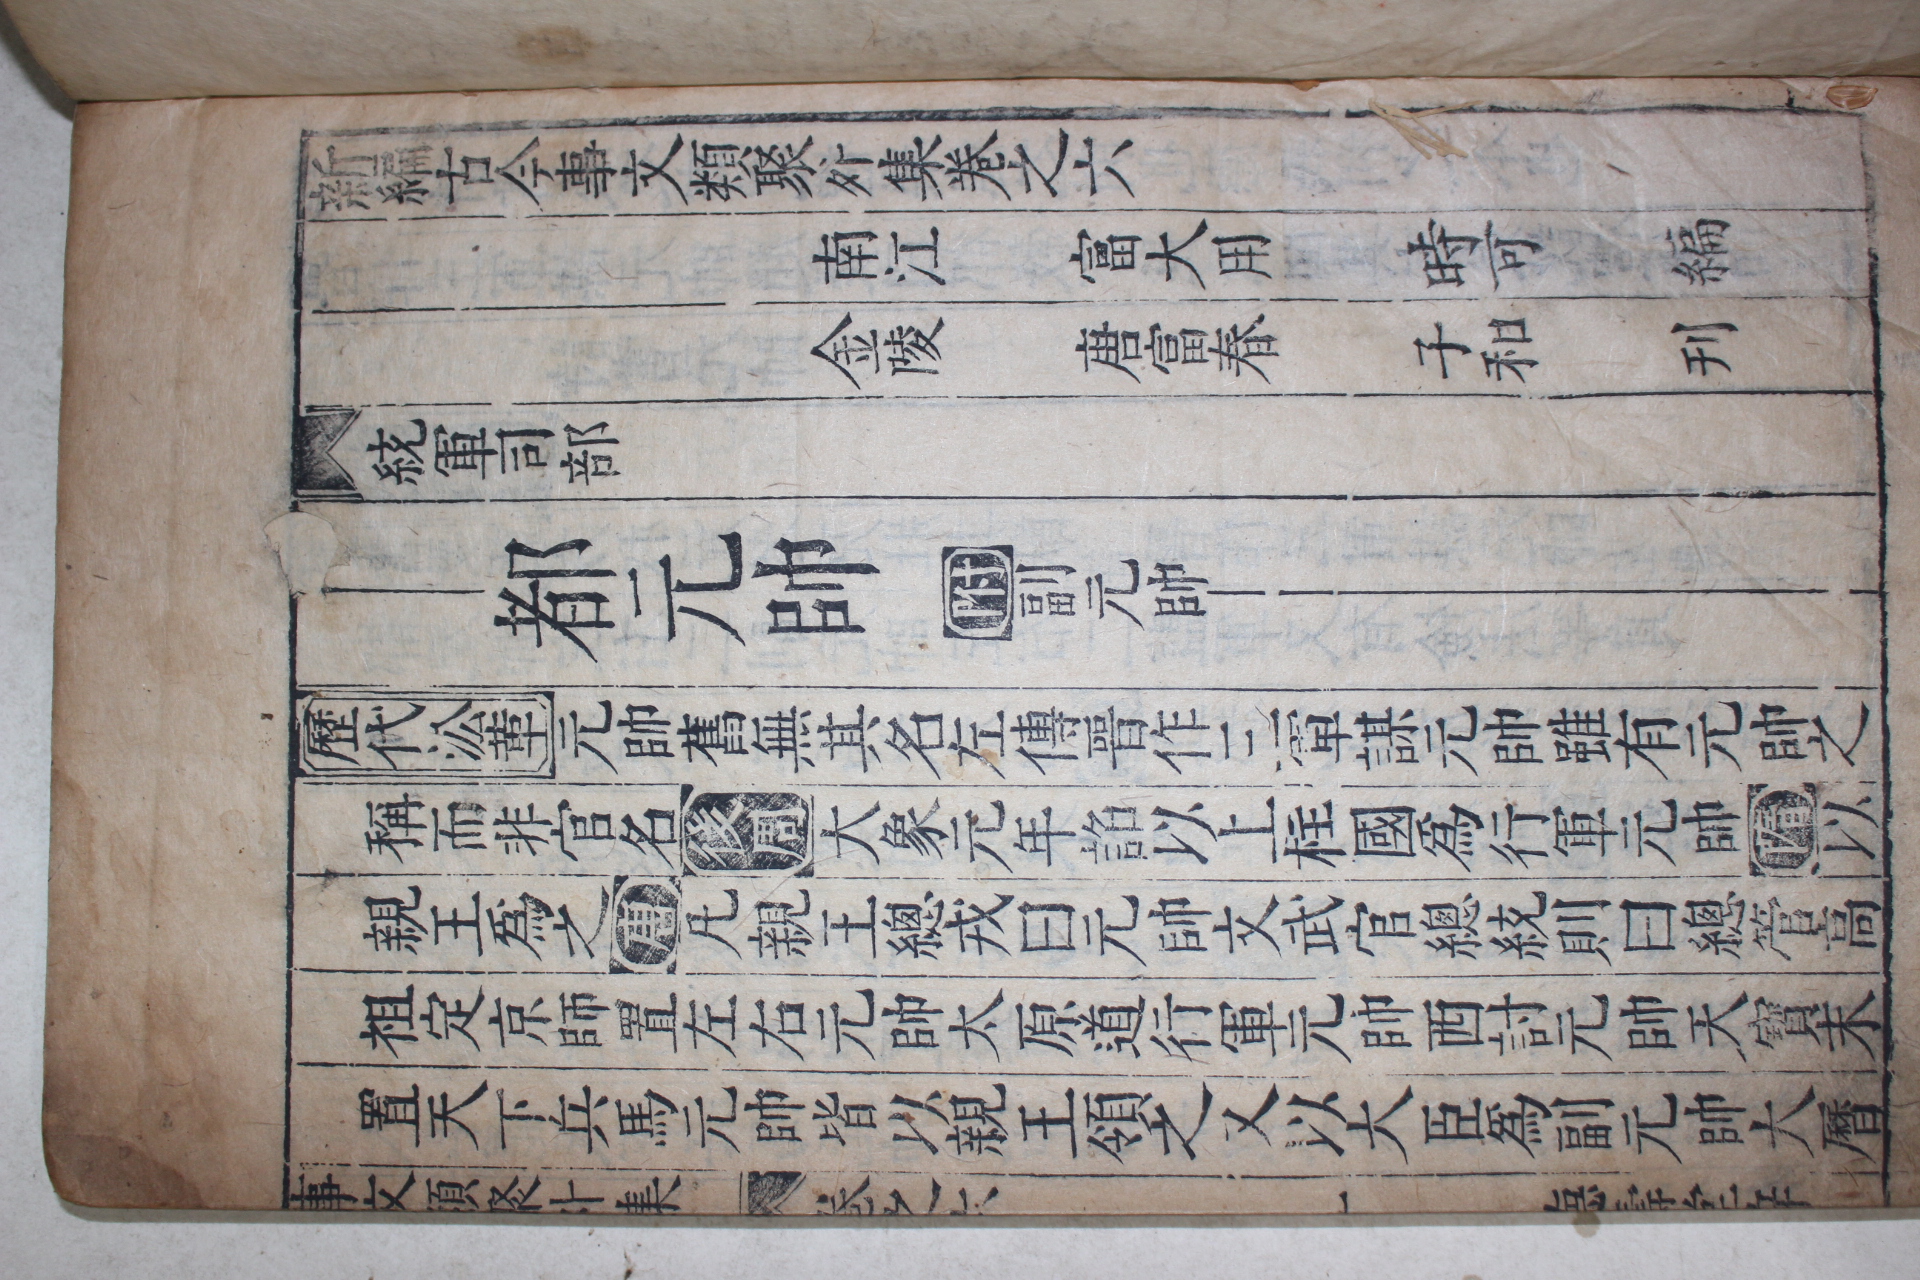 新編古今事文類聚外集卷之六
南江 富大用 時可 編
金陵 唐富春 子和 刊
統軍司部
都元帥 附副元帥
歷代沿革元帥舊無其名左傳晉作二軍謀元帥雖有元帥之
稱而非官名後周大象元年詔以上柱國爲行軍元帥隋以
親王爲之唐凡親王總戎曰元帥文武官總統則曰總管高
祖定京師置左右元帥太原道行軍元帥西討元帥天寶末
置天下兵馬元帥皆以親王領之又以大臣爲副元帥大曆
事文類聚外集 卷之六 一